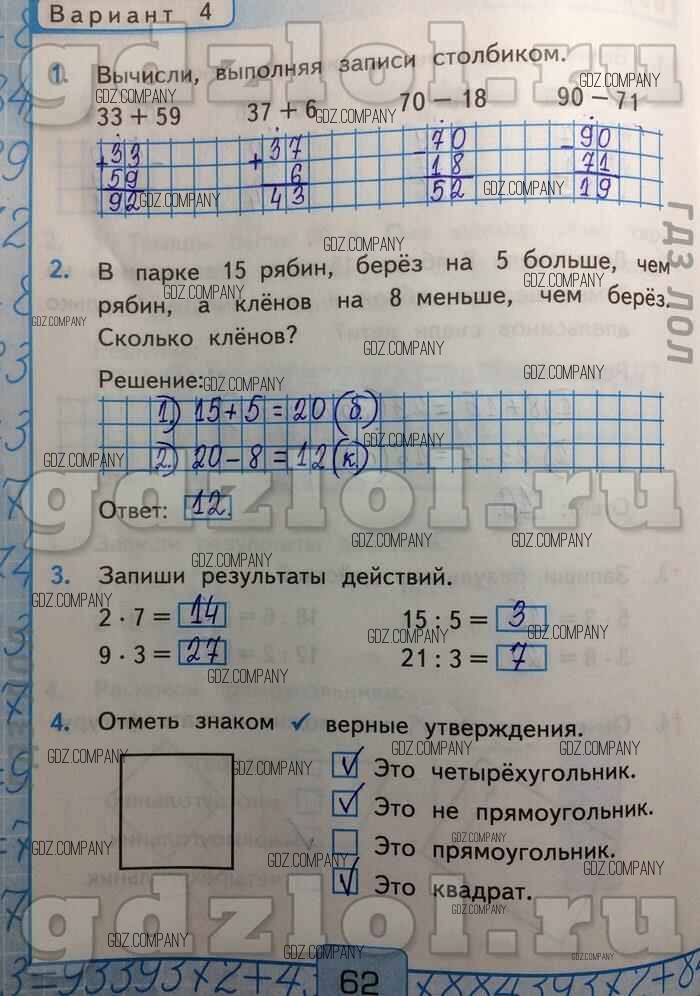 Вариант 4
gdzlol.ru
1. Вычисли, выполняя записи столбиком.
33 + 59 37 + 6 70 − 18 90 − 71
+33 +37 −70 −90
59 6 18 71
92 43 52 19
2. В парке 15 рябин, берёз на 5 больше, чем
рябин, а клёнов на 8 меньше, чем берёз.
Сколько клёнов?
Решение:
1) 15 + 5 = 20 (б.)
2) 20 − 8 = 12 (к.)
gdzlol.ru
Ответ: 12.
3. Запиши результаты действий.
2 · 7 = 14 15 : 5 = 3
9 · 3 = 27 21 : 3 = 7
4. Отметь знаком ✓ верные утверждения.
✓ Это четырёхугольник.
✓ Это не прямоугольник.
Это прямоугольник.
✓ Это квадрат.
gdzlol.ru
62
GDZ.COMPANY
гдз лол